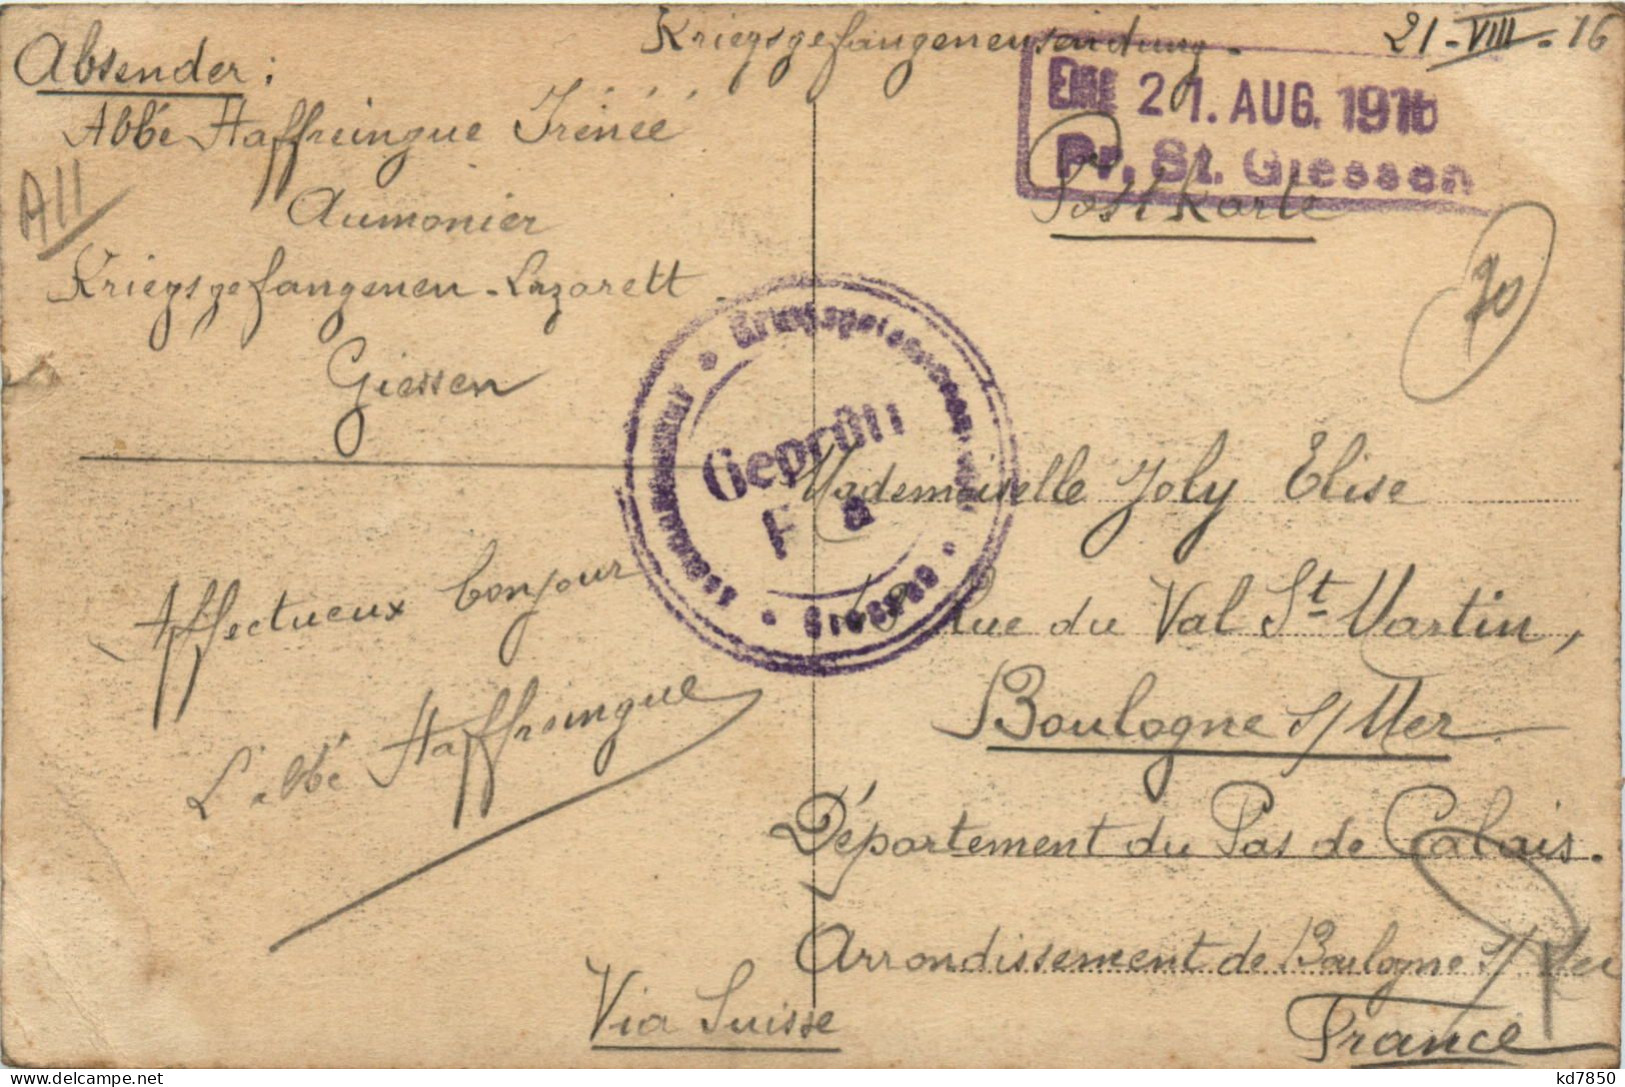 Kriegsgefangenensendung -
21 - VIII - 16
Absender :
Abbé Haffreingue Irénée
Aumonier
Kriegsgefangenen - Lazarett -
Giessen
A11
21. AUG. 1916
Pr. St. Giessen
Postkarte
70
Kriegsgefangenen
Kommandantur
Giessen
Geprüft
F a
Affectueux bonjour
L'abbé Haffreingue
Mademoiselle Joly Elise
Rue du Val St Martin,
Boulogne s/Mer
Département du Pas de Calais.
Arrondissement de Boulogne s/Mer
Via Suisse
France
kd7850